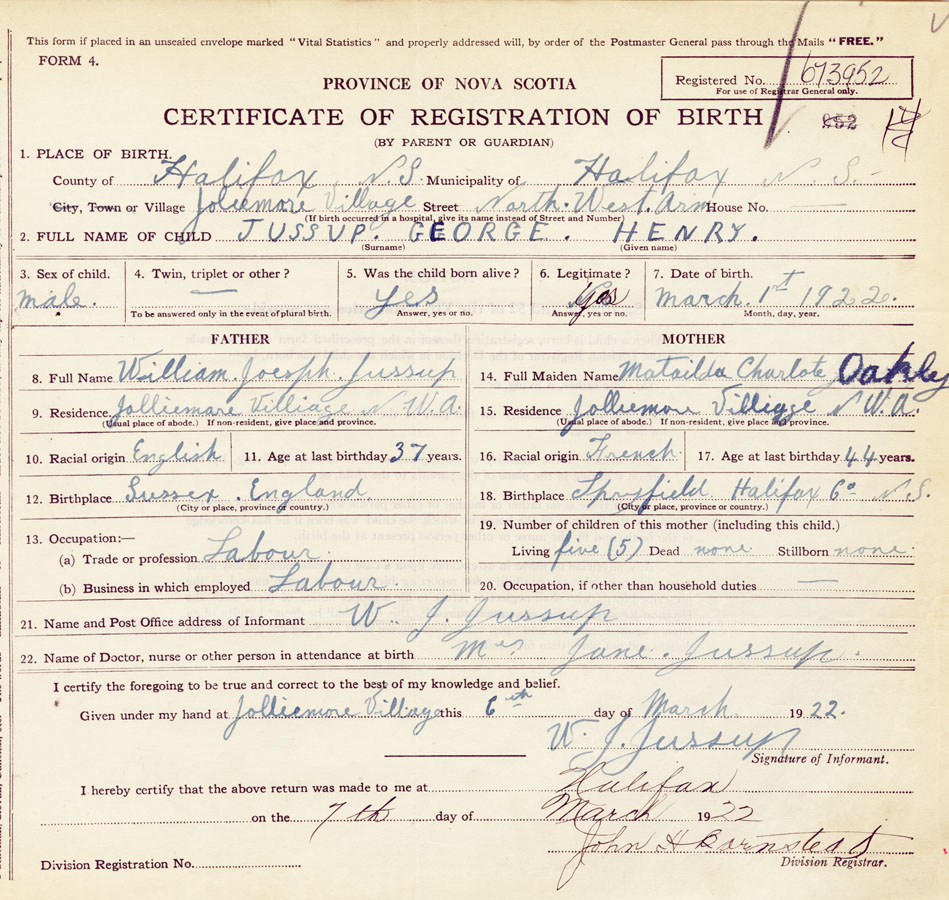 This form if placed in an unsealed envelope marked "Vital Statistics" and properly addressed will, by order of the Postmaster General pass through the Mails "FREE."
FORM 4.
Registered No. 673952
For use of Registrar General only.
PROVINCE OF NOVA SCOTIA
CERTIFICATE OF REGISTRATION OF BIRTH
952
(BY PARENT OR GUARDIAN)
1. PLACE OF BIRTH.
County of Halifax N.S. Municipality of Halifax N.S.
City, Town or Village Joliemore Village Street North West Arm House No. —
(If birth occurred in a hospital, give its name instead of Street and Number)
2. FULL NAME OF CHILD JUSSUP. GEORGE. HENRY.
(Surname) (Given name)
3. Sex of child. 4. Twin, triplet or other? 5. Was the child born alive? 6. Legitimate? 7. Date of birth.
male. — yes Yes March. 1st 1922.
To be answered only in the event of plural birth. Answer, yes or no. Answer, yes or no. Month, day, year.
FATHER MOTHER
8. Full Name William. Joesph. Jussup 14. Full Maiden Name Matailda Charlote Oakley
9. Residence. Jolliemore Villiage N.W.A. 15. Residence Jolliemore Villiage N.W.A.
(Usual place of abode.) If non-resident, give place and province. (Usual place of abode.) If non-resident, give place and province.
10. Racial origin English 11. Age at last birthday 37 years. 16. Racial origin French 17. Age at last birthday 44 years.
12. Birthplace Sussex. England. 18. Birthplace Spryfield Halifax Co N.S.
(City or place, province or country.) (City or place, province or country.)
13. Occupation:— 19. Number of children of this mother (including this child.)
(a) Trade or profession Labour. Living five (5) Dead none Stillborn none.
(b) Business in which employed Labour. 20. Occupation, if other than household duties —
21. Name and Post Office address of Informant W. J. Jussup
22. Name of Doctor, nurse or other person in attendance at birth Mrs Jane. Jussup.
I certify the foregoing to be true and correct to the best of my knowledge and belief.
Given under my hand at Jolliemore Villiage this 6th day of March 1922.
W. J. Jussup
Signature of Informant.
I hereby certify that the above return was made to me at Halifax
on the 7th day of March 1922
John H Barnstead
Division Registrar.
Division Registration No.